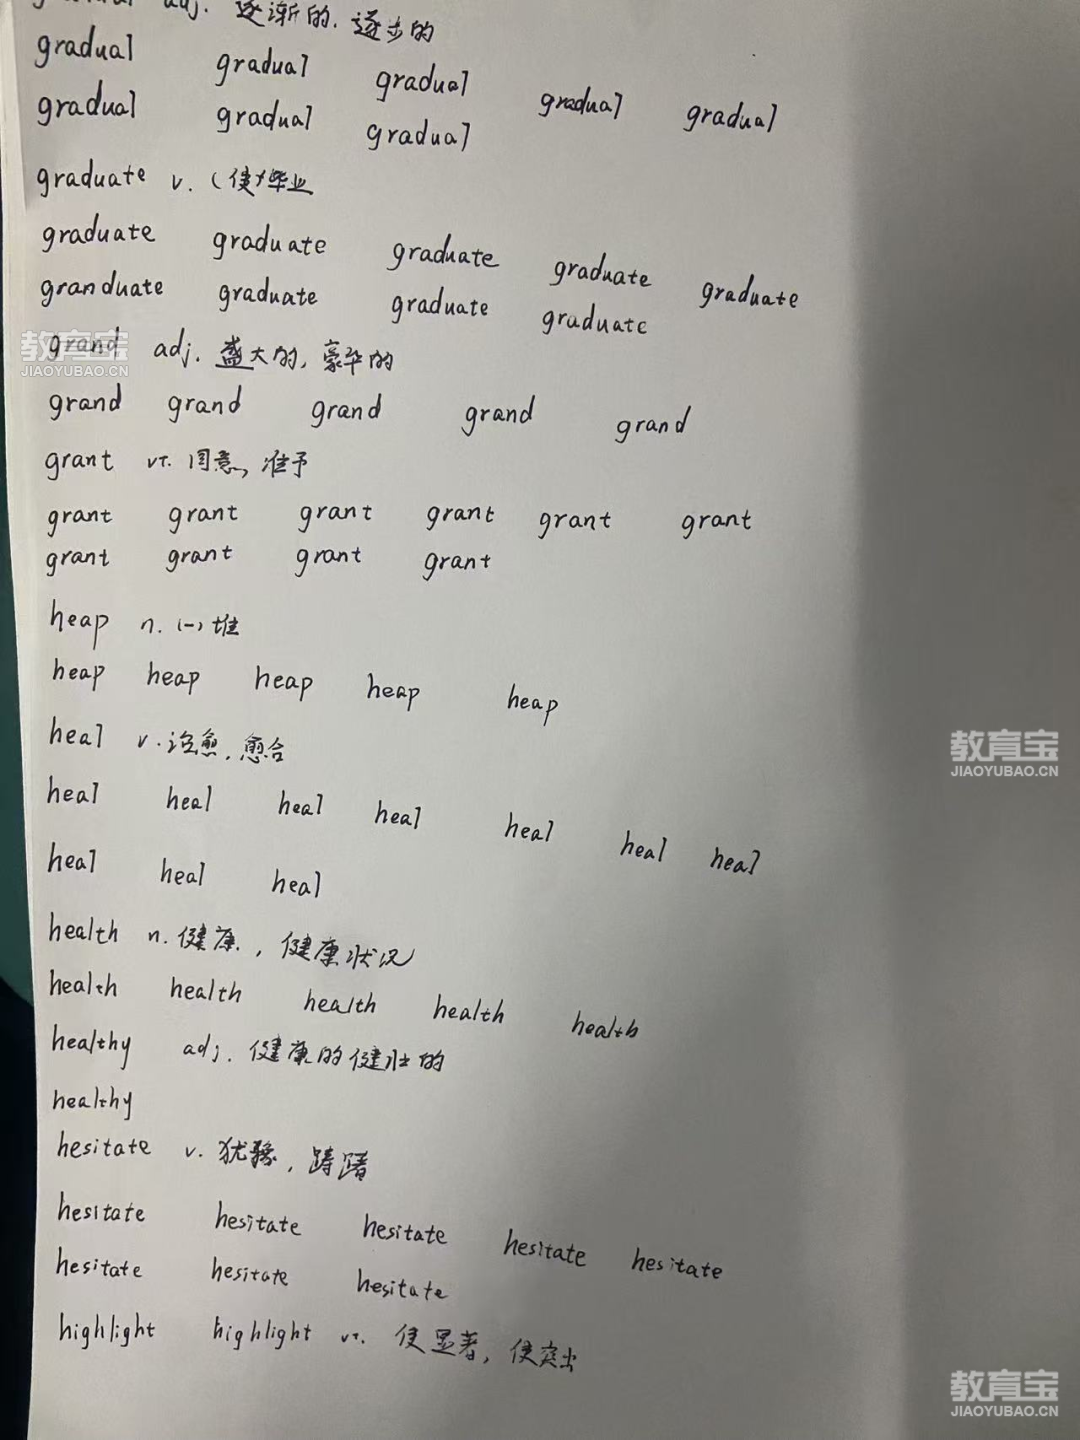 gradual adj. 逐渐的. 逐步的
gradual gradual gradual gradual gradual
gradual gradual gradual
graduate v. (使)毕业
graduate graduate graduate graduate graduate
granduate graduate graduate graduate
grand adj. 盛大的, 豪华的
grand grand grand grand grand
grant vt. 同意, 准予
grant grant grant grant grant grant
grant grant grant grant
heap n. (一) 堆
heap heap heap heap heap
heal v. 治愈, 愈合
heal heal heal heal heal heal heal
heal heal heal
health n. 健康, 健康状况
health health health health health
healthy adj. 健康的 健壮的
healthy
hesitate v. 犹豫, 踌躇
hesitate hesitate hesitate hesitate hesitate
hesitate hesitate hesitate
highlight highlight vt. 使显著, 使突出
教育宝
JIAOYUBAO.CN
教育宝
JIAOYUBAO.CN
教育宝
JIAOYUBAO.CN